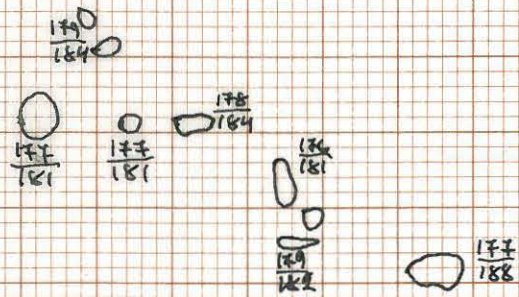 179
184
177
181
177
181
178
184
181
179
177
188